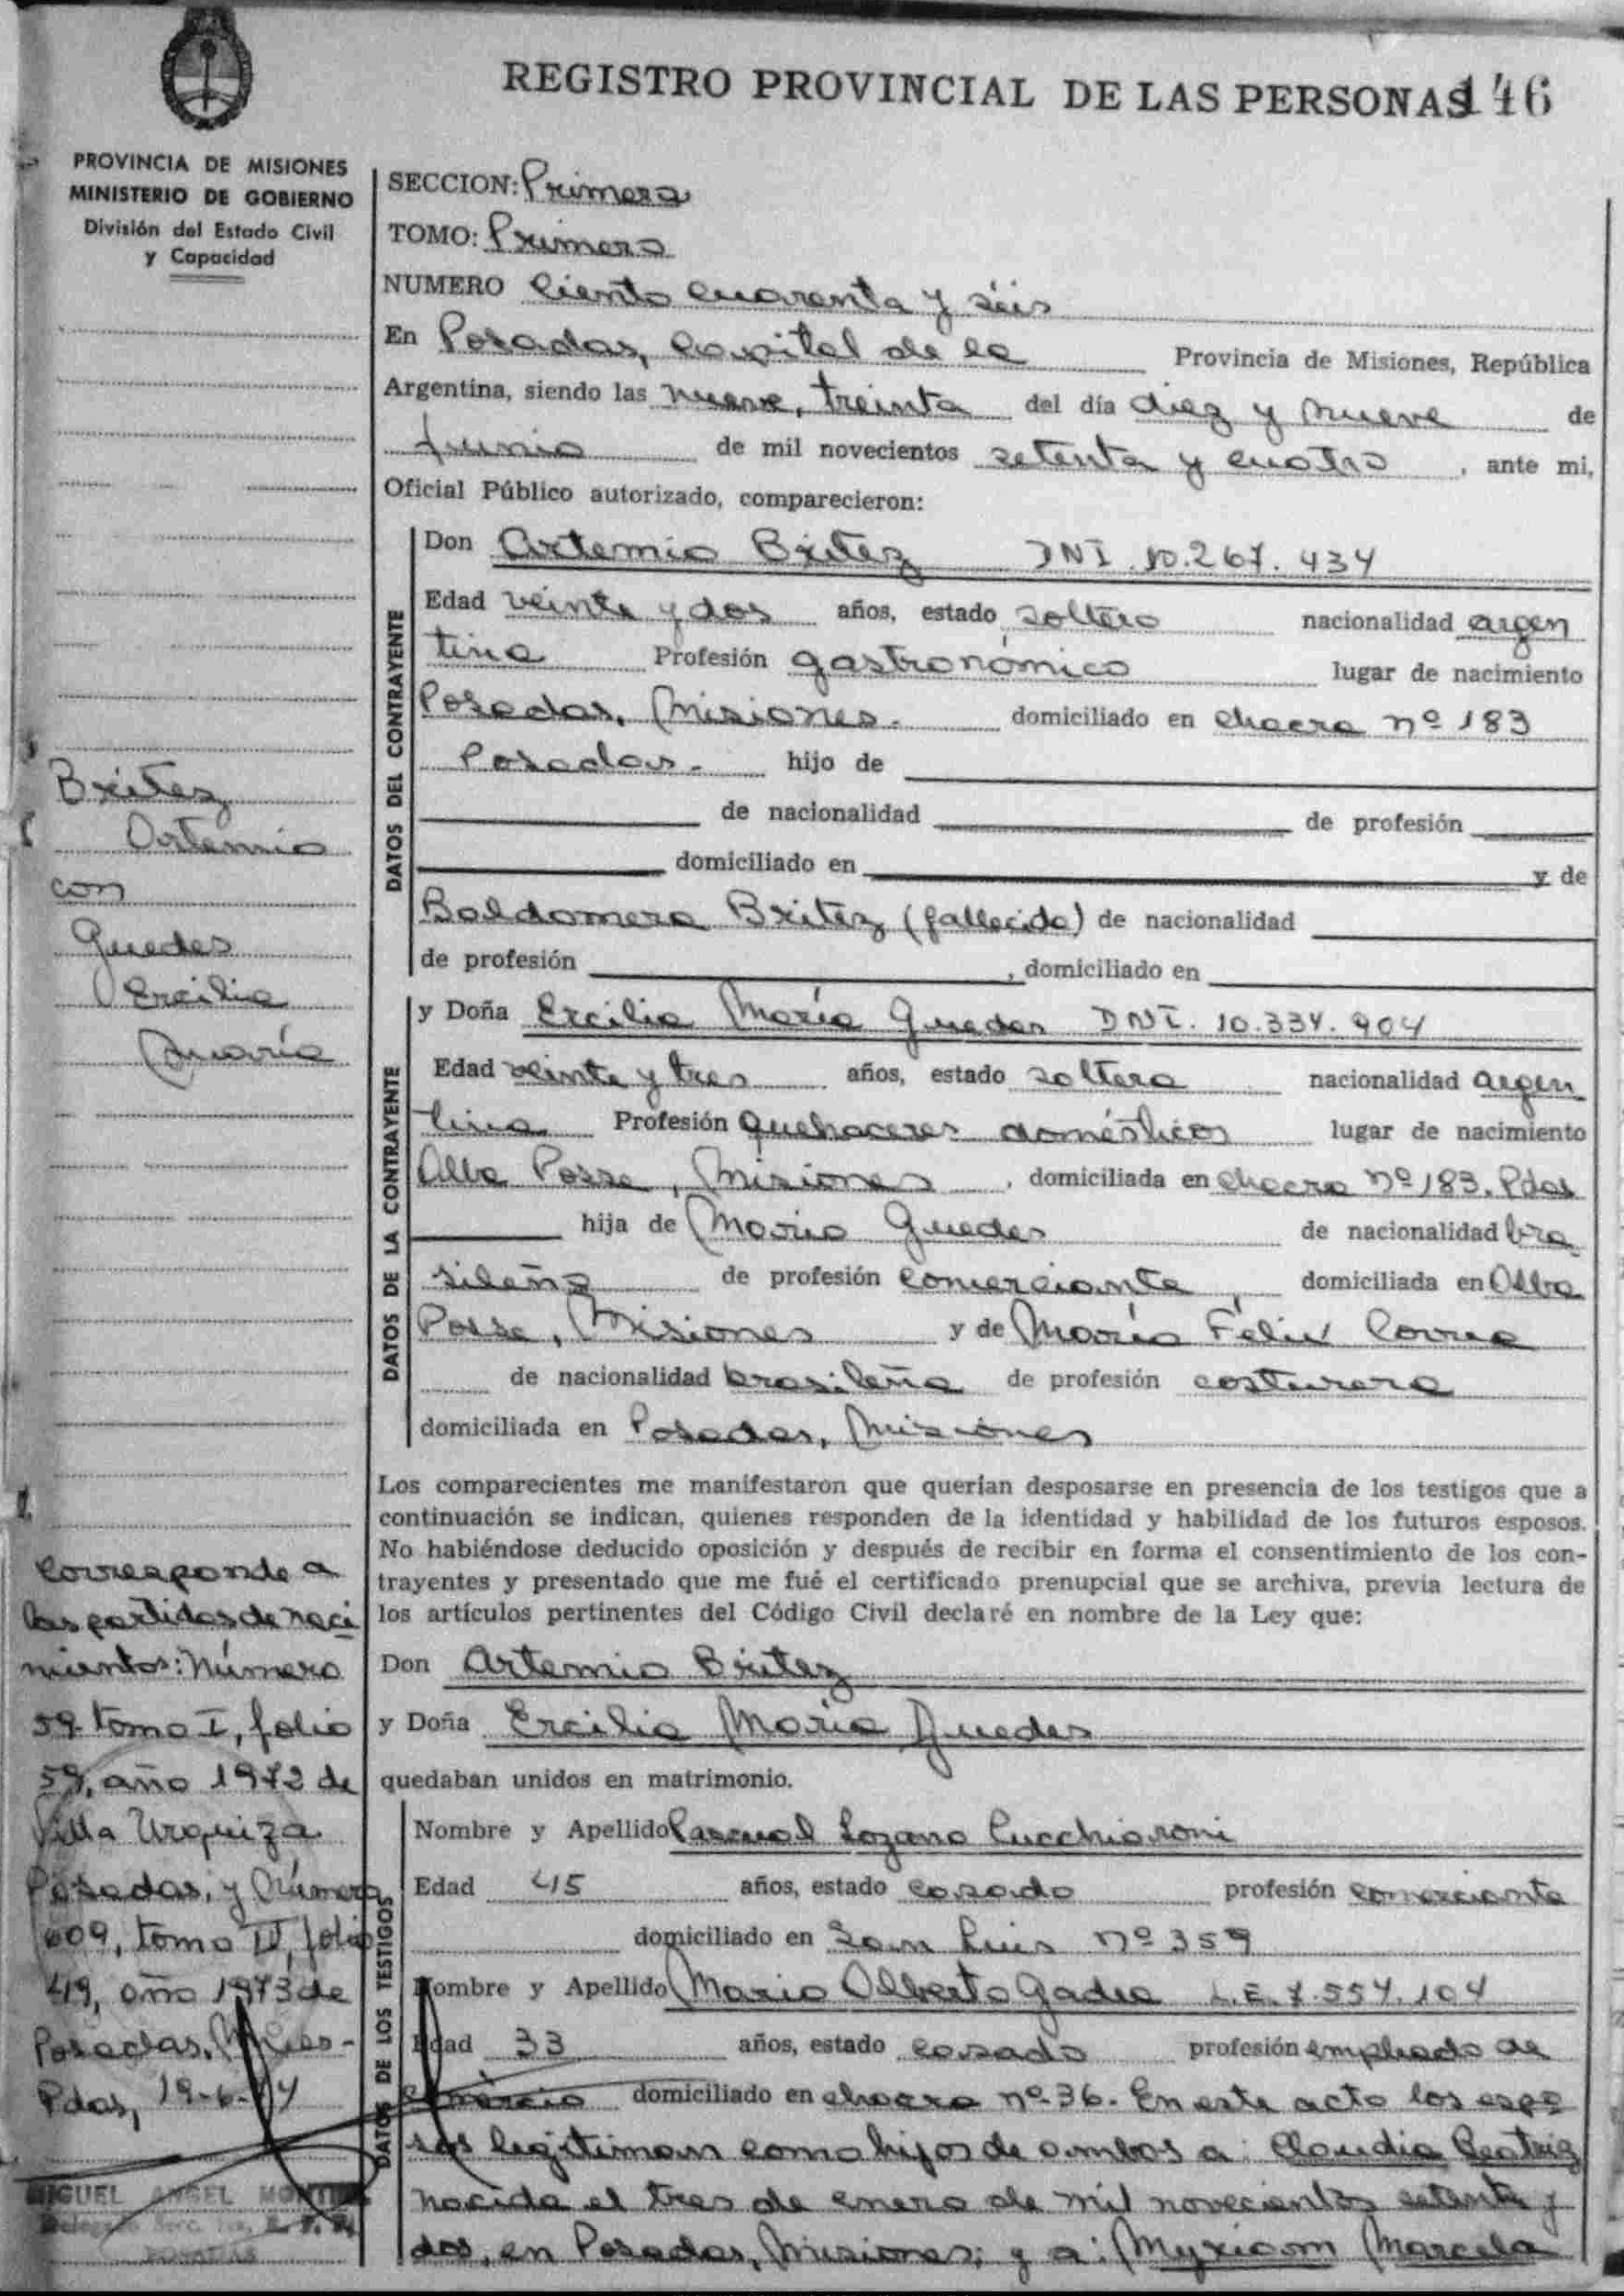 REGISTRO PROVINCIAL DE LAS PERSONAS 146
PROVINCIA DE MISIONES
MINISTERIO DE GOBIERNO
División del Estado Civil
y Capacidad
SECCION: Primera
TOMO: Primero
NUMERO Ciento cuarenta y séis
En Posadas, Capital de la Provincia de Misiones, República
Argentina, siendo las nueve, treinta del día diez y nueve de
junio de mil novecientos setenta y cuatro, ante mi,
Oficial Público autorizado, comparecieron:
DATOS DEL CONTRAYENTE
Don Artemio Britez DNI 10.267.434
Edad veinte y dos años, estado soltero nacionalidad argen
tina Profesión gastronómico lugar de nacimiento
Posadas, Misiones. domiciliado en chacra nº 183
Posadas. hijo de
de nacionalidad de profesión
domiciliado en y de
Baldomera Britez (fallecida) de nacionalidad
de profesión , domiciliado en
DATOS DE LA CONTRAYENTE
y Doña Ercilia María Guedes DNI. 10.334.904
Edad veinte y tres años, estado soltera nacionalidad argen
tina Profesión quehaceres domésticos lugar de nacimiento
Alba Posse, Misiones, domiciliada en chacra nº 183. Pdas
hija de Mario Guedes de nacionalidad bra
sileña de profesión comerciante, domiciliada en Alba
Posse, Misiones y de María Felix Correa
de nacionalidad brasileña de profesión costurera
domiciliada en Posadas, Misiones
Los comparecientes me manifestaron que querían desposarse en presencia de los testigos que a
continuación se indican, quienes responden de la identidad y habilidad de los futuros esposos.
No habiéndose deducido oposición y después de recibir en forma el consentimiento de los con-
trayentes y presentado que me fué el certificado prenupcial que se archiva, previa lectura de
los artículos pertinentes del Código Civil declaré en nombre de la Ley que:
Don Artemio Britez
y Doña Ercilia María Guedes
quedaban unidos en matrimonio.
DATOS DE LOS TESTIGOS
Nombre y Apellido Pascual Lozano Cucchiaroni
Edad 45 años, estado casado profesión comerciante
domiciliado en San Luis nº 359
Nombre y Apellido Mario Alberto Gadea L.E. 7.557.104
Edad 33 años, estado casado profesión empleado de
comercio domiciliado en chacra nº 36. En este acto los espo
sos legitiman como hijos de ambos a: Claudia Beatriz
nacida el tres de enero de mil novecientos setenta y
dos, en Posadas, Misiones; y a: Myriam Marcela
Britez
Artemio
con
Guedes
Ercilia
María
Corresponde a
las partidas de naci
mientos: Número
59 tomo I, folio
59, año 1972 de
Villa Urquiza
Posadas, y Número
609, tomo IV, folio
419, año 1973 de
Posadas,
Pdas, 19-6-74
MIGUEL ANGEL
POSADAS